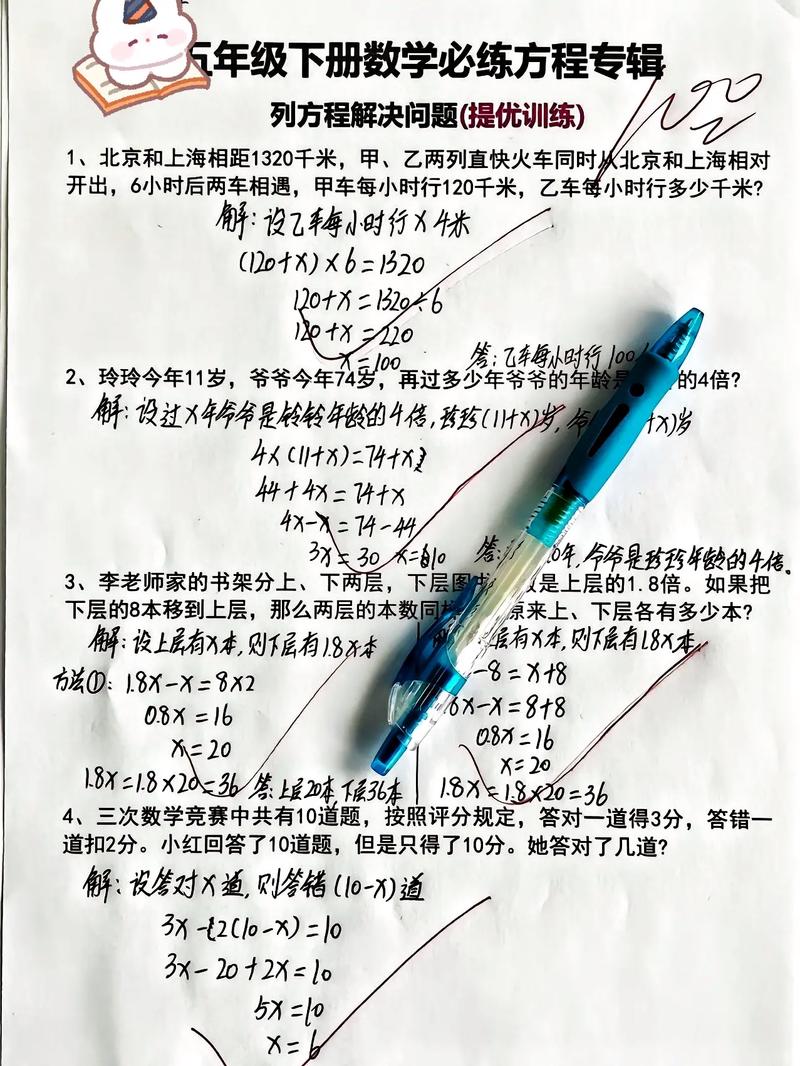 五年级下册数学必练方程专辑
列方程解决问题(提优训练)
100
1、北京和上海相距1320千米，甲、乙两列直快火车同时从北京和上海相对
开出，6小时后两车相遇，甲车每小时行120千米，乙车每小时行多少千米?
解:设乙车每小时行X千米
(120+x)×6=1320
120+x=1320÷6
120+x=220
x=100
答:乙车每小时行100
2、玲玲今年11岁，爷爷今年74岁，再过多少年爷爷的年龄是 的4倍?
解:设过X年爷爷是铃铃年龄的4倍,玲玲(11+x)岁, +x)岁
4×(11+x)=74+x
44+4x=74+x
4x-x=74-44
3x=30 x=10
答: 年,爷爷是玲玲年龄的4倍。
3、李老师家的书架分上、下两层，下层图书 是上层的1.8倍。如果把
下层的8本移到上层，那么两层的本数同 原来上、下层各有多少本?
解:设上层有X本,则下层有1.8X本
方法①: 1.8x-x=8×2
0.8x=16
x=20
1.8x=1.8×20=36 答:上层20本,下层36本
层有X本,则下层有1.8X本
-8=x+8
x-x=8+8
0.8x=16
x=20
1.8x=1.8×20=36
4、三次数学竞赛中共有10道题，按照评分规定，答对一道得3分，答错一
道扣2分。小红回答了10道题，但是只得了10分。她答对了几道?
解:设答对X道,则答错(10-x)道
3x-2(10-x)=10
3x-20+2x=10
5x=10
x=6